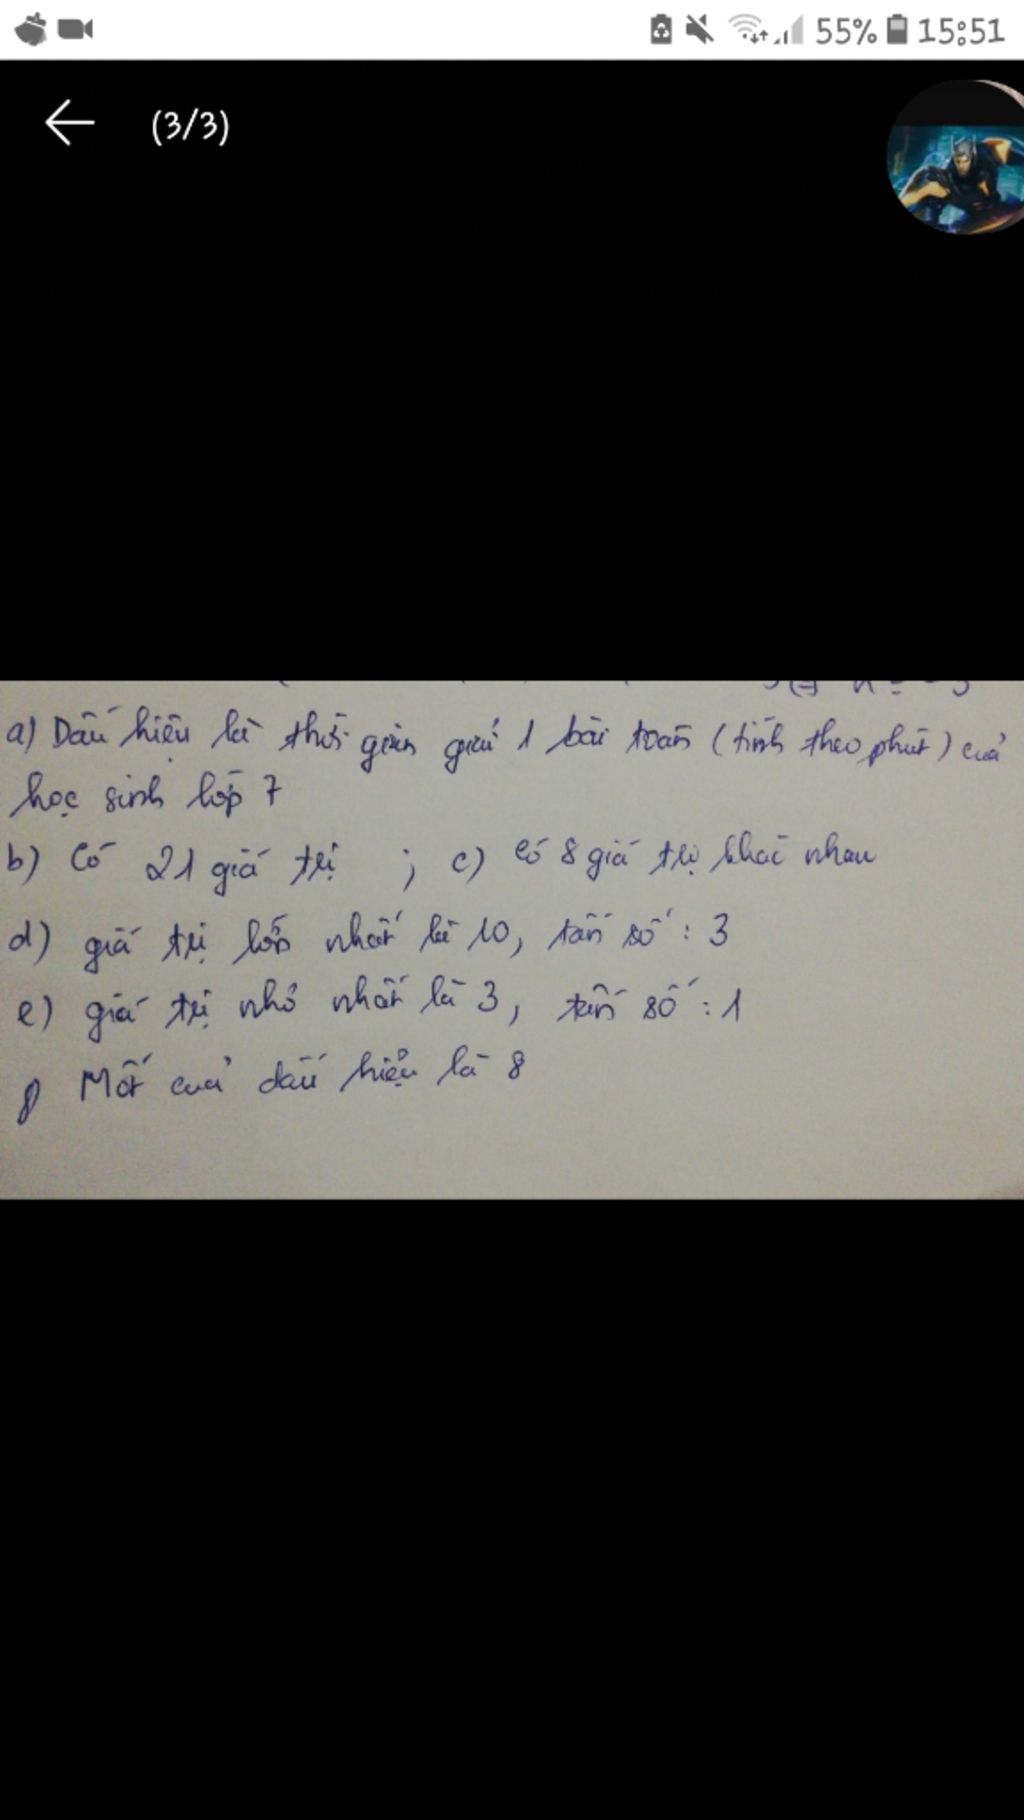 55% 15:51
(3/3)
a) Dấu hiệu là thời gian giải 1 bài toán (tính theo phút) của
học sinh lớp 7
b) Có 21 giá trị ; c) Có 8 giá trị khác nhau
d) giá trị lớn nhất là 10, tần số : 3
e) giá trị nhỏ nhất là 3, tần số : 1
f) Mốt của dấu hiệu là 8